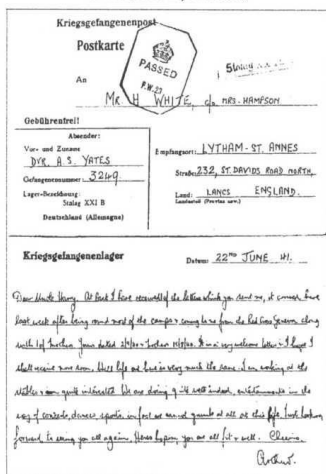 Kriegsgefangenenpost
Postkarte
PASSED
P.W. 27
An
MR. H WHITE, c/o MRS. HAMPSON
Gebührenfrei!
Absender:
Vor- und Zuname
DVR. A.S. YATES
Gefangenennummer: 3249
Lager-Bezeichnung:
Stalag XXI B
Deutschland (Allemagne)
Empfangsort: LYTHAM-ST. ANNES
Straße: 232, ST. DAVIDS ROAD NORTH,
Land: LANCS ENGLAND.
Landesteil (Provinz usw.)
Kriegsgefangenenlager
Datum: 22ND JUNE 41.
Dear Uncle Harry. At last I have received of the letters which you sent me, it came here
last week after being round most of the camps & coming here from the Red Cross Geneva along
with 1 of Mothers. Yours dated It was a very welcome letter & I hope I
shall receive more soon. Well life out here is very much the same. I am working at the
stables & am quite interested. We are doing well indeed, entertainments in the
way of concerts, dances, sports, in fact we cannot grumble at all at this life. Just looking
forward to seeing you all again. Heres hoping you are all fit & well. Cheerio.
Arthur.